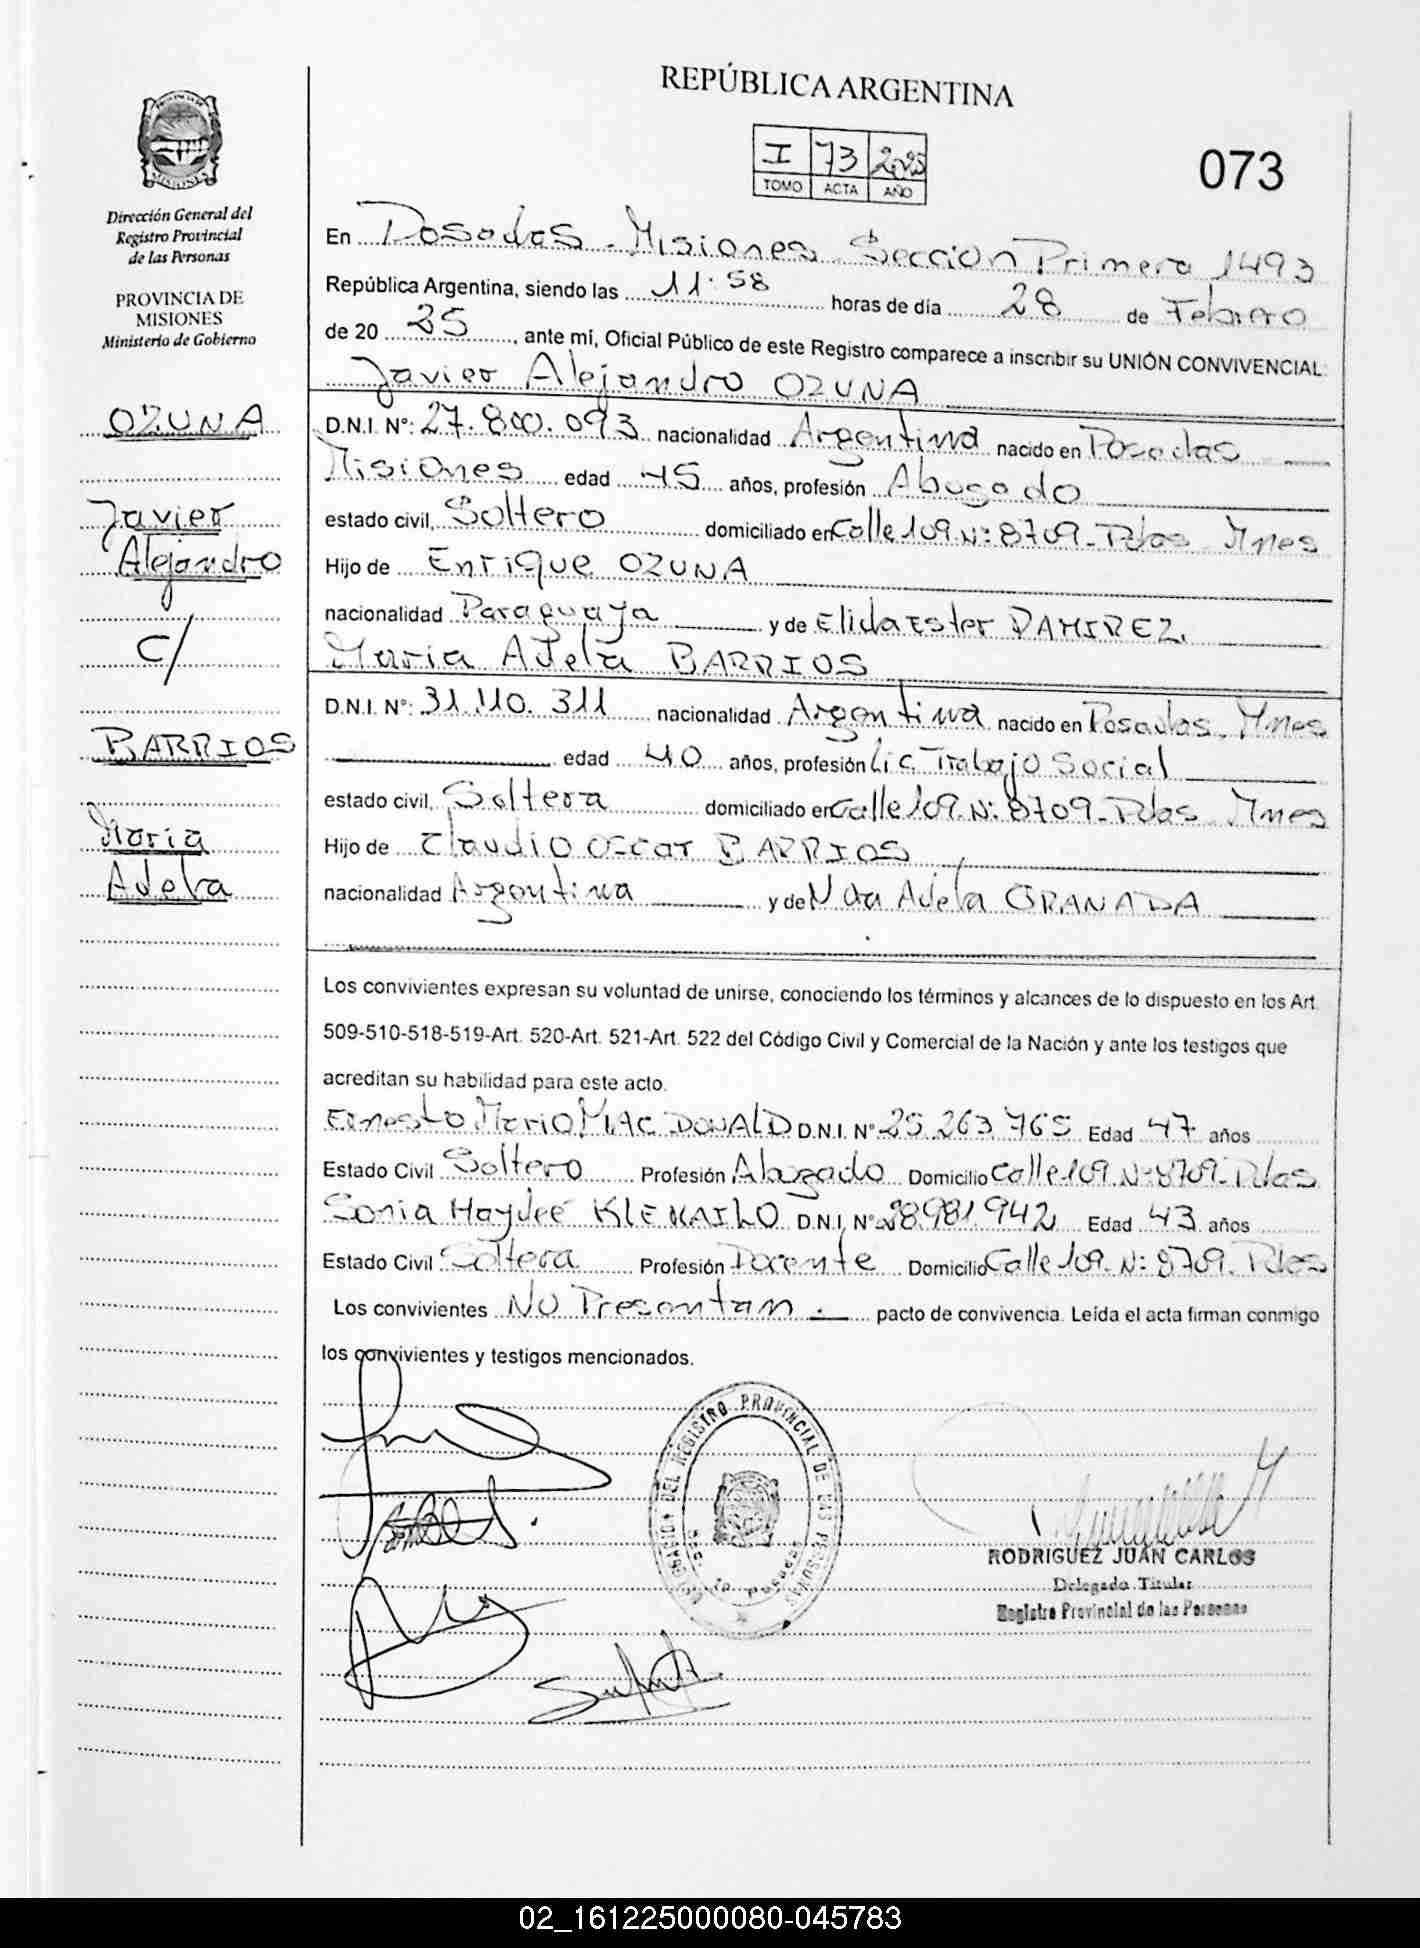 REPÚBLICA ARGENTINA
I 73 2025
TOMO ACTA AÑO
073
MISIONES
Dirección General del
Registro Provincial
de las Personas
PROVINCIA DE
MISIONES
Ministerio de Gobierno
OZUNA
Javier
Alejandro
C/
BARRIOS
Maria
Adela
En Posadas - Misiones. Seccion Primera 1493
República Argentina, siendo las 11:58 horas de día 28 de Febrero
de 20 25, ante mí, Oficial Público de este Registro comparece a inscribir su UNIÓN CONVIVENCIAL:
Javier Alejandro OZUNA
D.N.I. N°: 27.800.093 nacionalidad Argentina nacido en Posadas
Misiones edad 45 años, profesión Abogado
estado civil, Soltero domiciliado en Calle 109 N: 8709 - Pdas Mnes
Hijo de Enrique OZUNA
nacionalidad Paraguaya y de Elida Ester RAMIREZ.
Maria Adela BARRIOS
D.N.I. N°: 31.110.311 nacionalidad Argentina nacido en Posadas, Mnes
edad 40 años, profesión Lic Trabajo Social
estado civil, Soltera domiciliado en Calle 109 N: 8709 - Pdas Mnes
Hijo de Claudio Oscar BARRIOS
nacionalidad Argentina y de Adela GRANADA
Los convivientes expresan su voluntad de unirse, conociendo los términos y alcances de lo dispuesto en los Art.
509-510-518-519-Art. 520-Art. 521-Art. 522 del Código Civil y Comercial de la Nación y ante los testigos que
acreditan su habilidad para este acto.
Ernesto Mario MAC DONALD D.N.I. N° 25.263.765 Edad 47 años
Estado Civil Soltero Profesión Abogado Domicilio Calle 109 N: 8709 - Pdas
Sonia Haydeé D.N.I. N° 28.981.942 Edad 43 años
Estado Civil Soltera Profesión Docente Domicilio Calle 109 N: 8709. Pdas
Los convivientes No Presentan. pacto de convivencia. Leída el acta firman conmigo
los convivientes y testigos mencionados.
DELEGACION DEL REGISTRO PROVINCIAL DE LAS PERSONAS
RODRIGUEZ JUAN CARLOS
Delegado Titular
Registro Provincial de las Personas
02_161225000080-045783